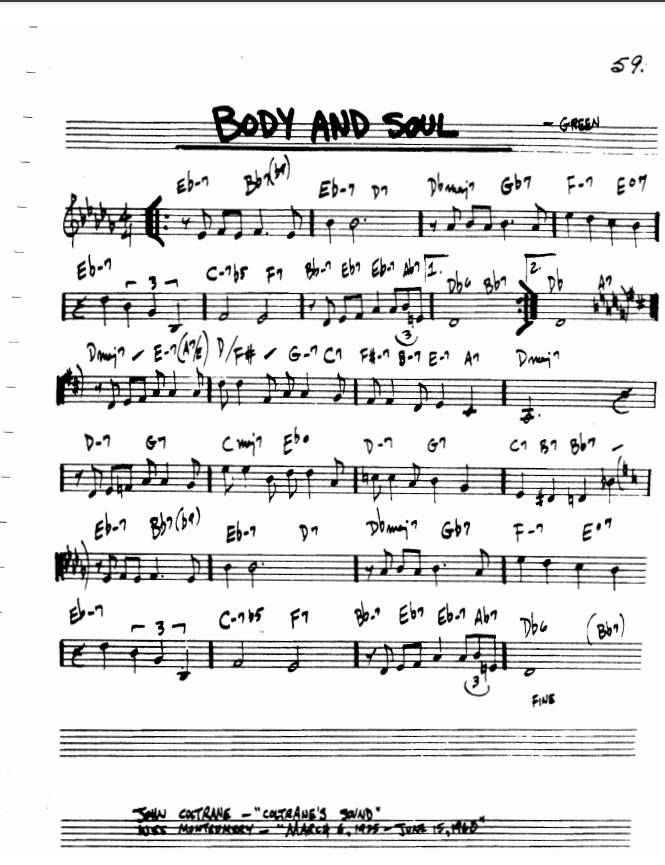 59.
BODY AND SOUL - GREEN
Eb-7 Bb7(b9) Eb-7 D7 Dbmaj7 Gb7 F-7 Eo7
4 4
Eb-7 C-7b5 F7 Bb-7 Eb7 Eb-7 Ab7 1. Db6 Bb7 2. Db A7
3 3
Dmaj7 E-7(A7/E) D/F# G-7 C7 F#-7 B-7 E-7 A7 Dmaj7
D-7 G7 Cmaj7 Ebo D-7 G7 C7 B7 Bb7
Eb-7 Bb7(b9) Eb-7 D7 Dbmaj7 Gb7 F-7 Eo7
Eb-7 C-7b5 F7 Bb-7 Eb7 Eb-7 Ab7 Db6 (Bb7)
3 3
FINE
JOHN COLTRANE - "COLTRANE'S SOUND"
WES MONTGOMERY - "MARCH 6, 1925 - JUNE 15, 1968"